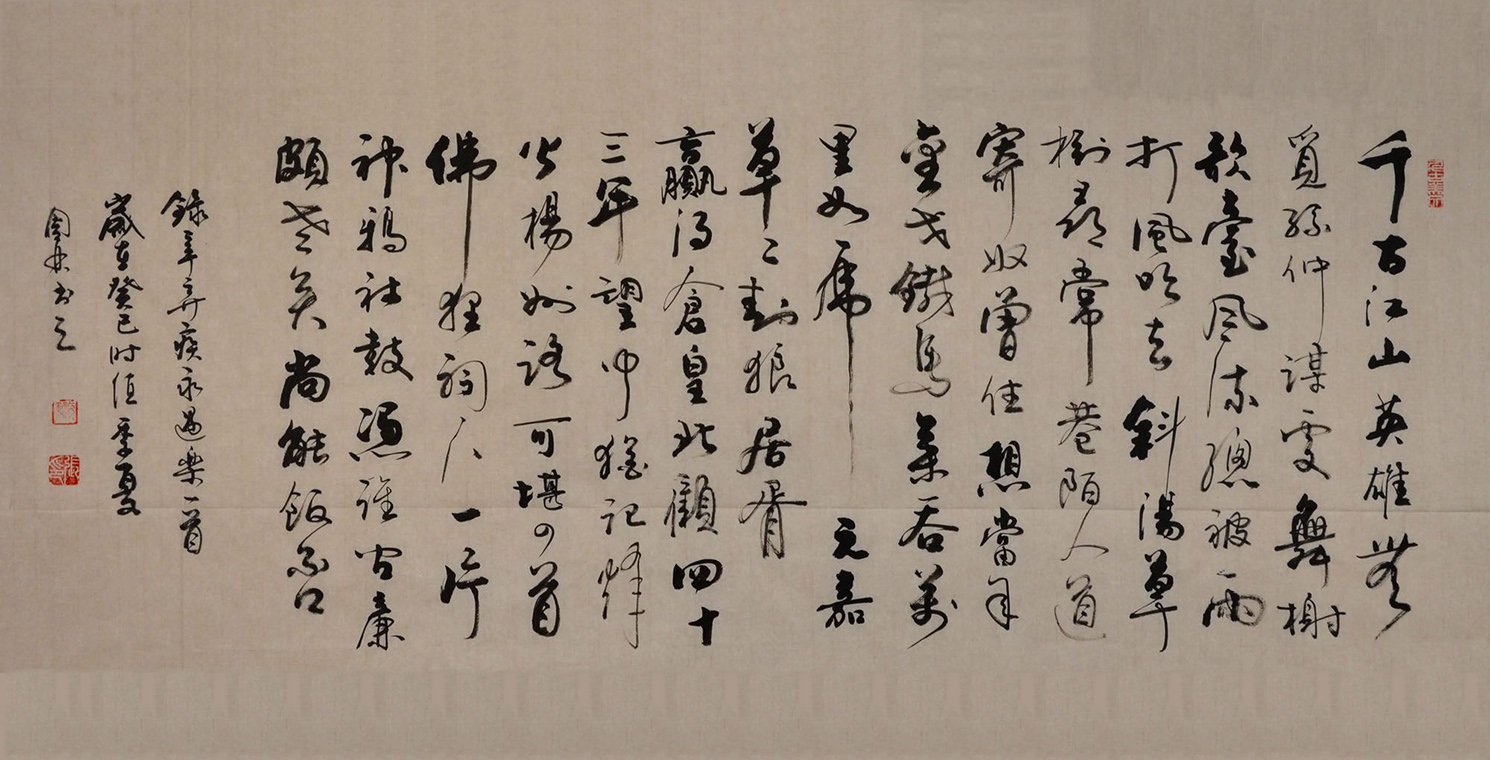 千古江山英雄無
覓孫仲謀處舞榭
歌臺風流總被雨
打風吹去斜陽草
樹尋常巷陌人道
寄奴曾住想當年
金戈鐵馬氣吞萬
里如虎 元嘉
草〻封狼居胥
贏得倉皇北顧四十
三年望中猶記烽
火楊州路可堪回首
佛狸祠下一片
神鴉社鼓憑誰問廉
頗老矣尚能飯否
錄辛弃疾永遇樂一首
歲在癸巳时值季夏
书之